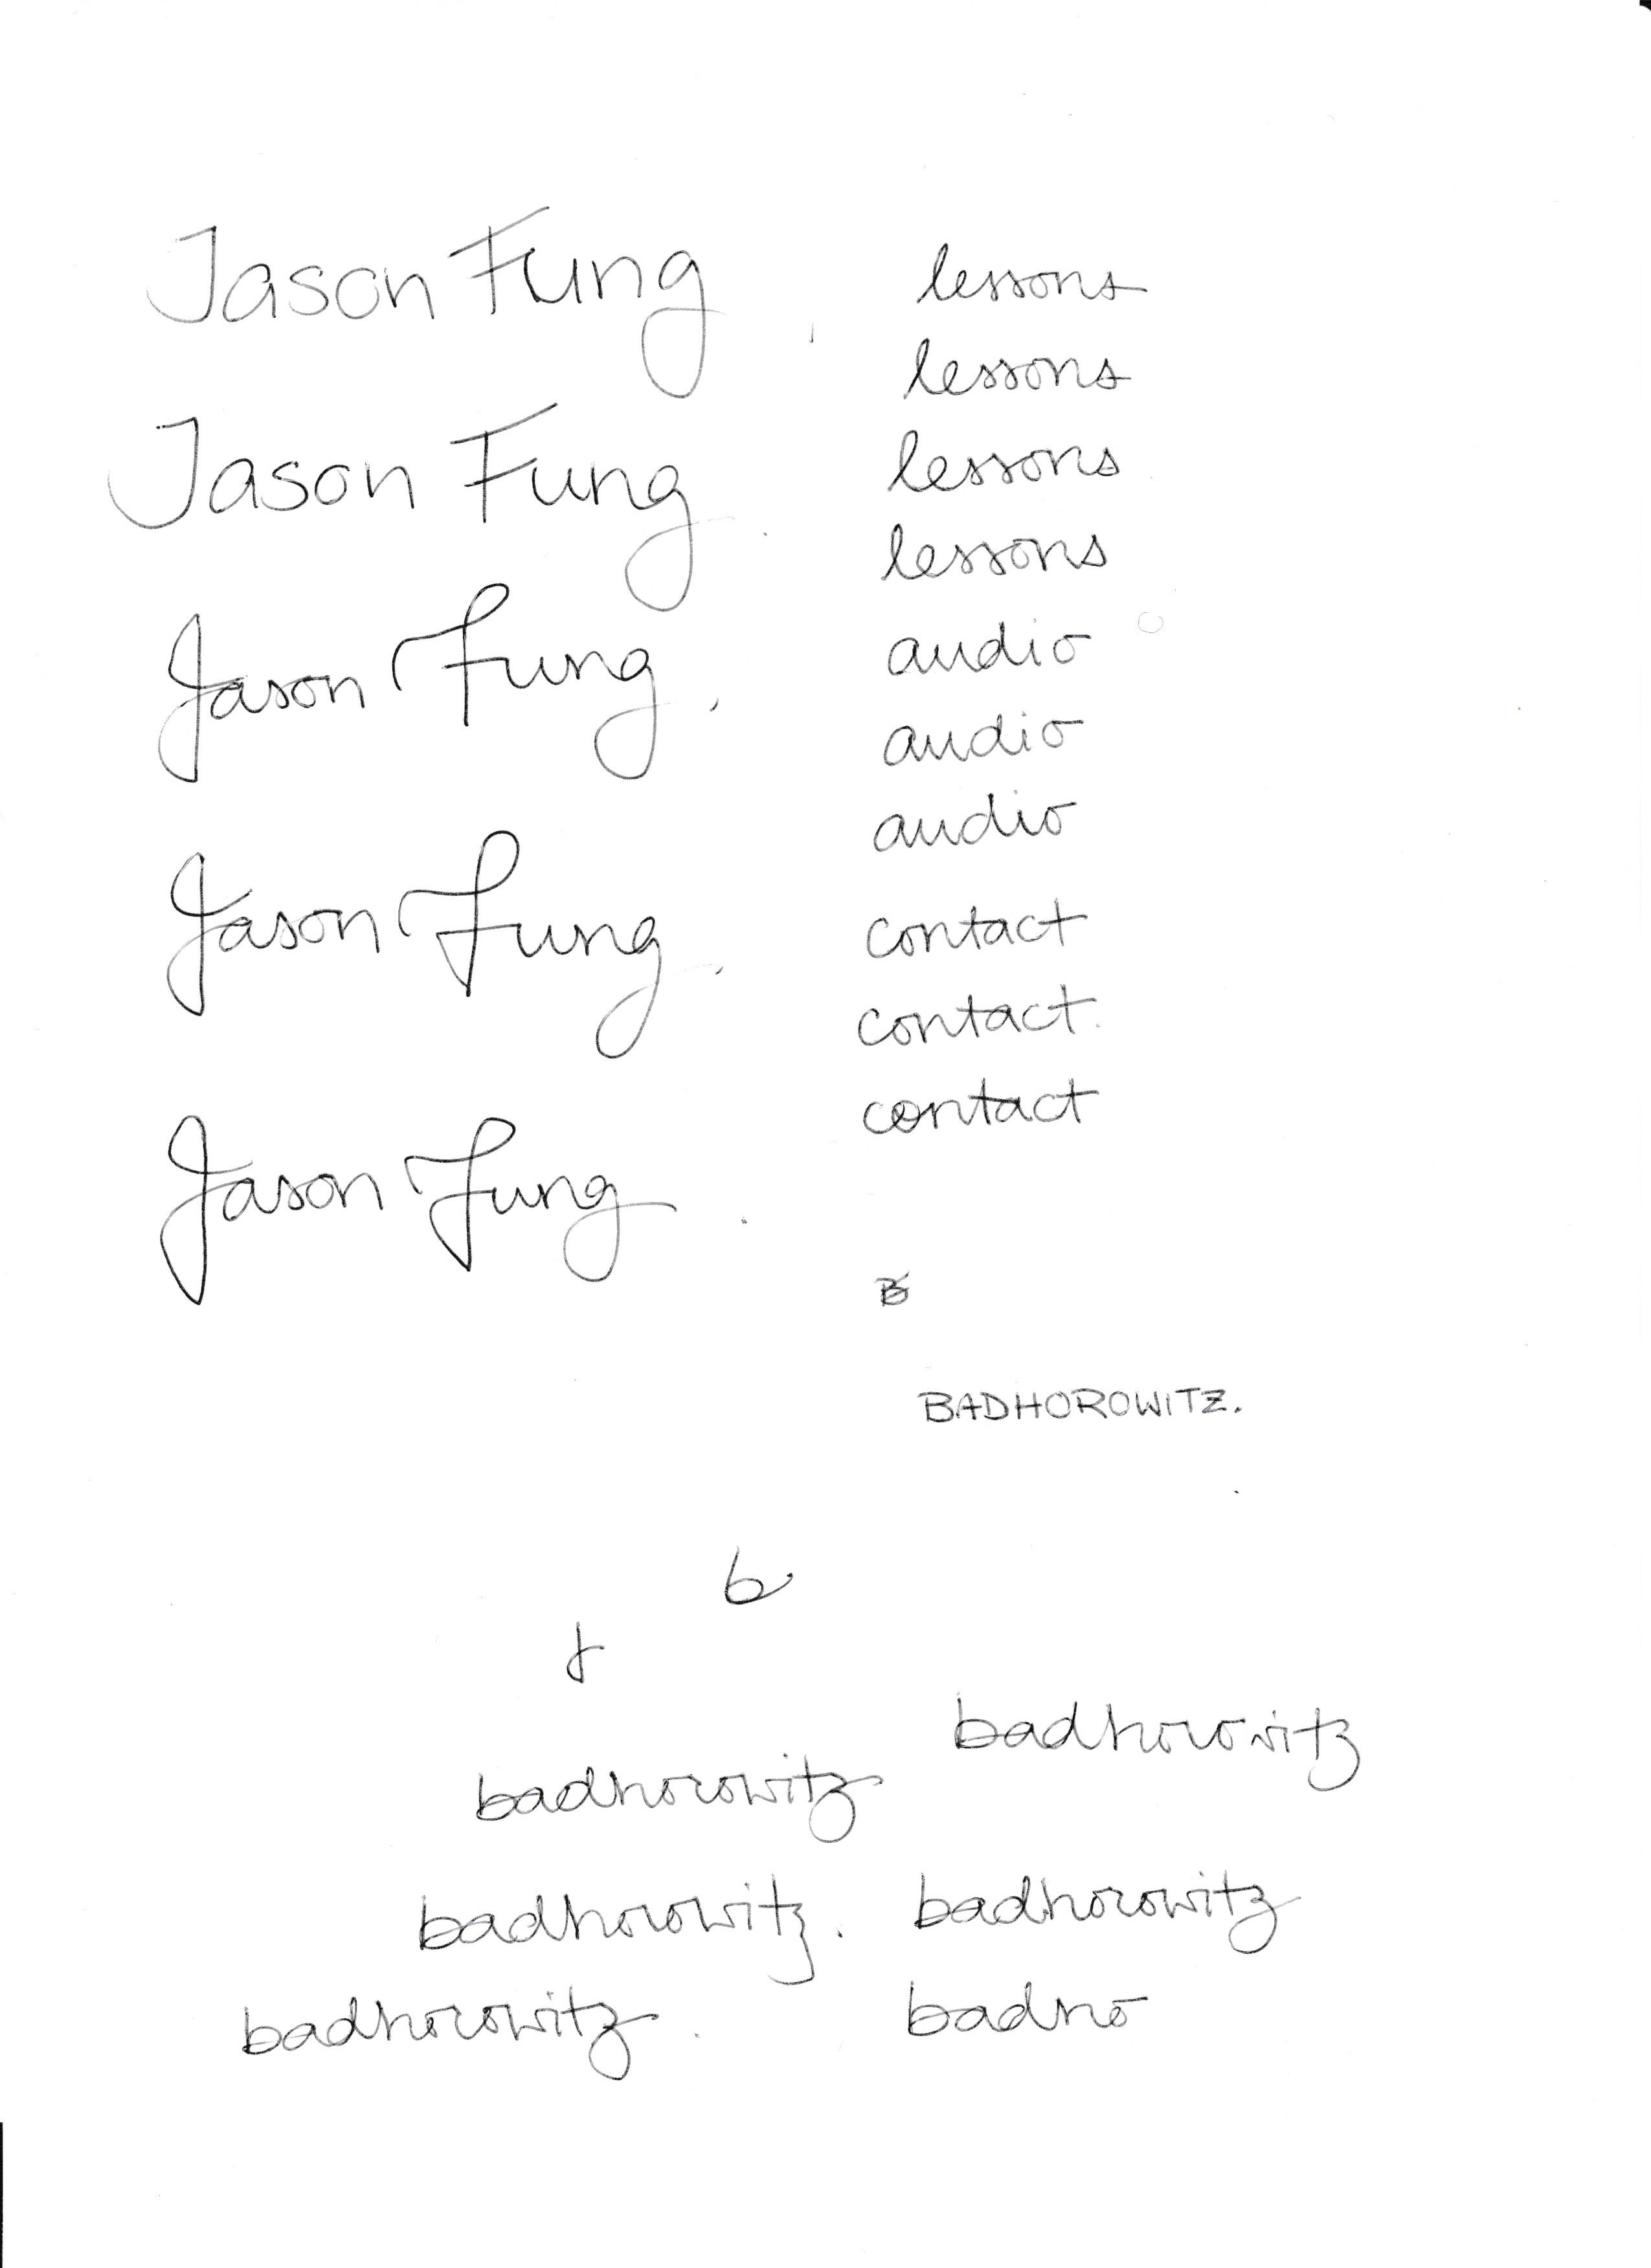 Jason Fung
Jason Fung
Jason Fung
Jason Fung
Jason Fung
lessons
lessons
lessons
lessons
audio
audio
audio
contact
contact
contact
B
BADHOROWITZ.
b
badhorowitz
badhorowitz
badhorowitz.
badhorowitz
badhorowitz
badho